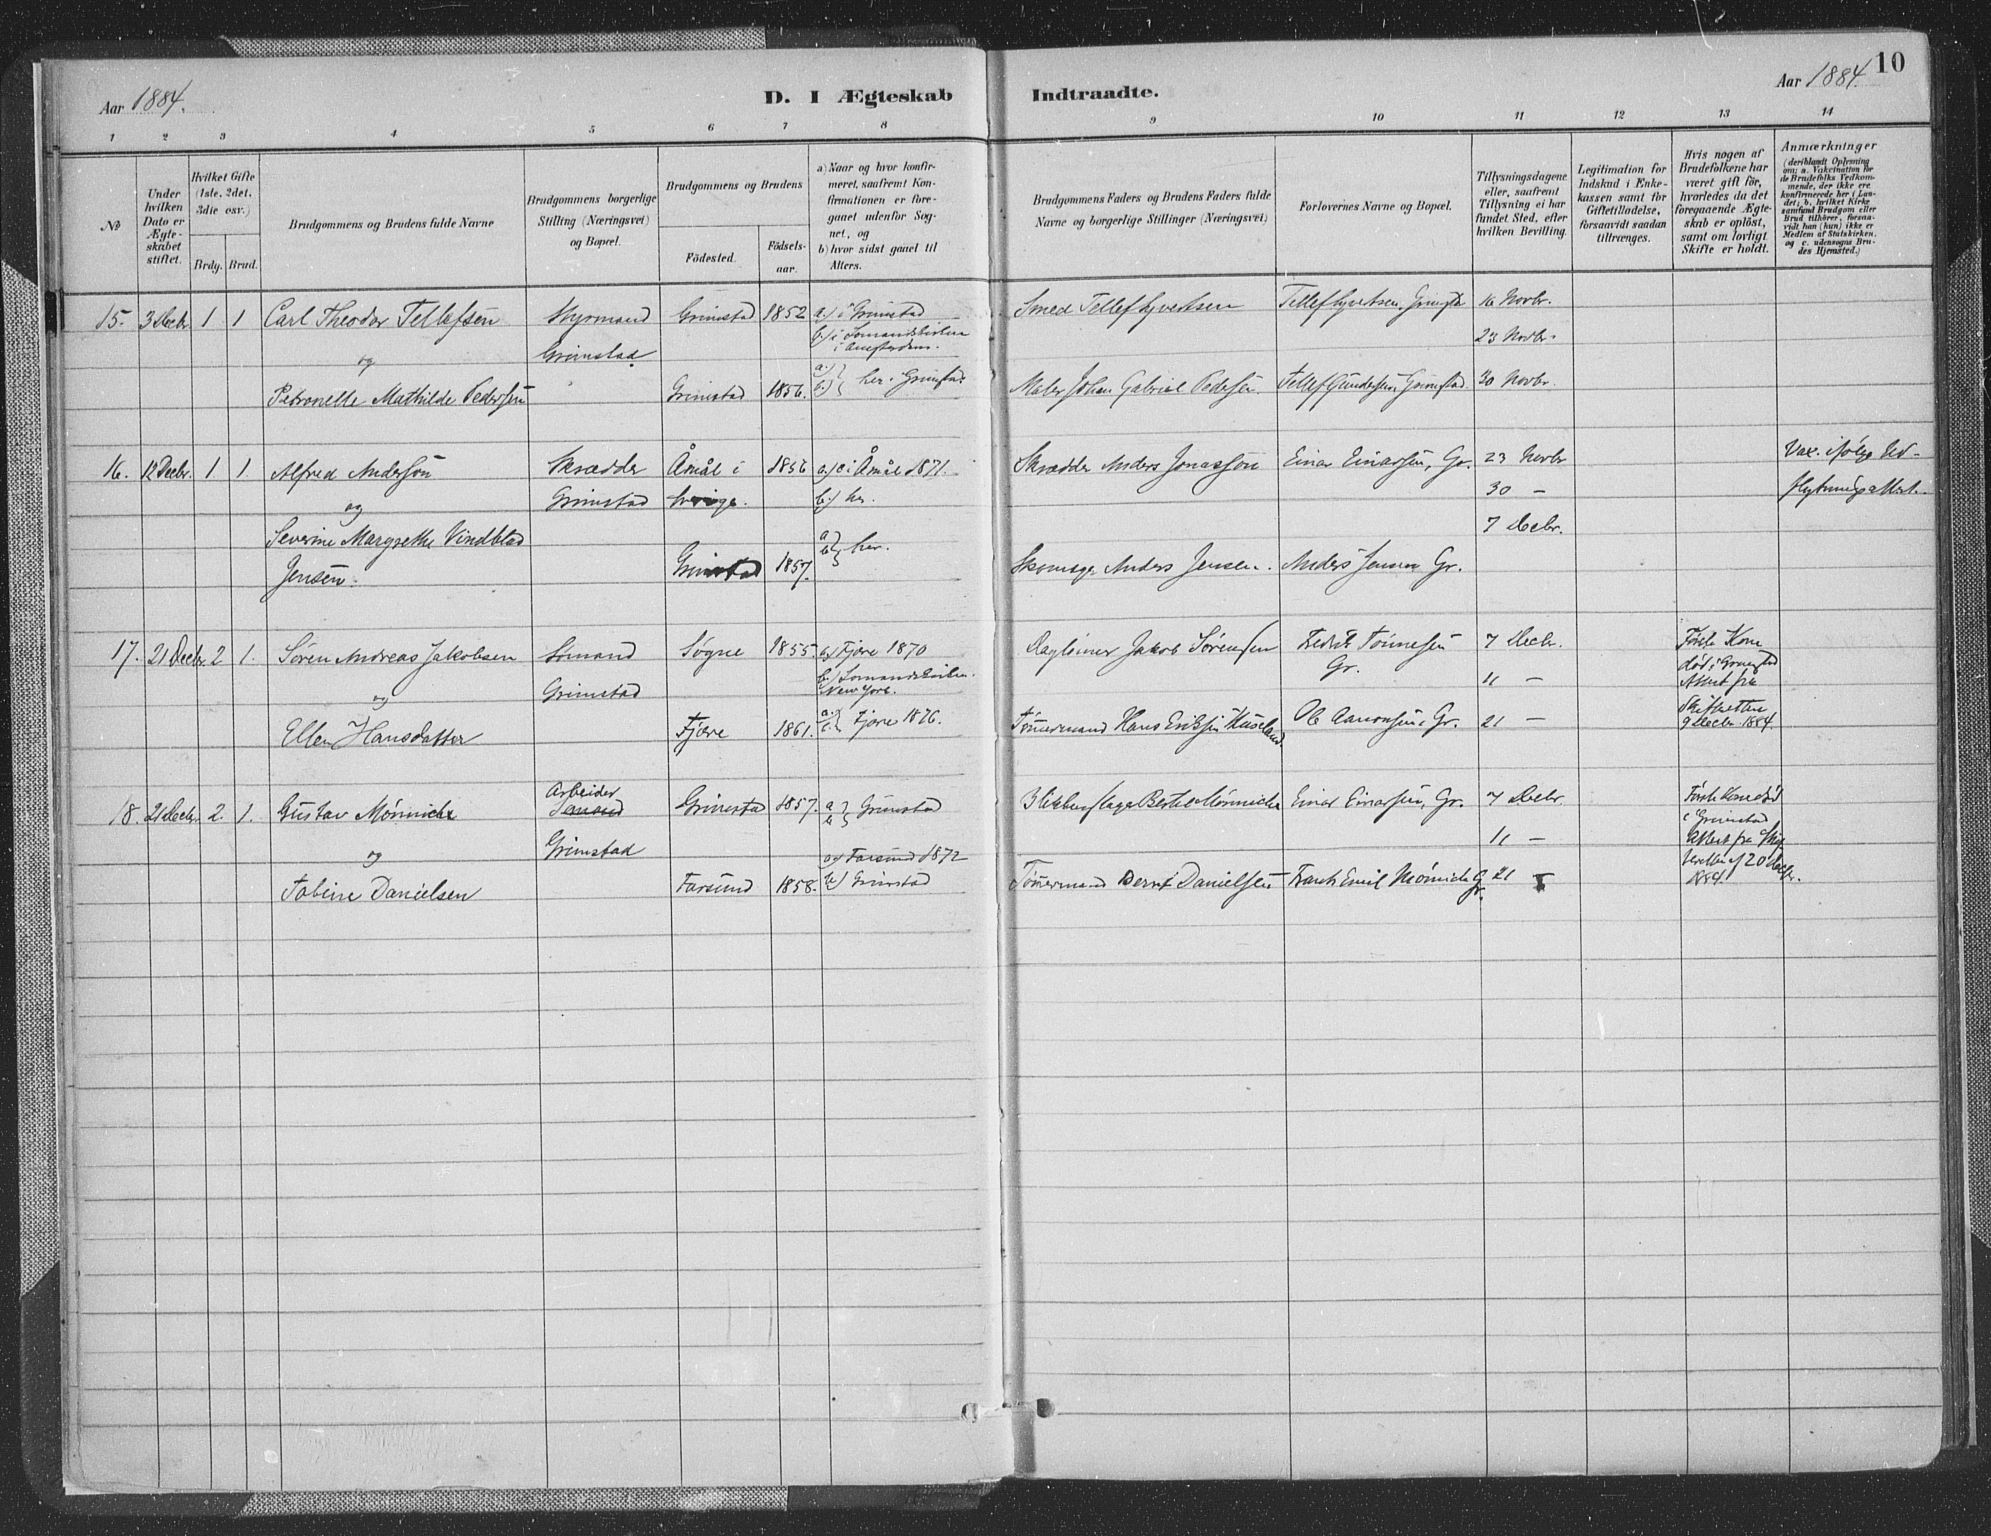 Aar 1884.
D. I Ægteskab Indtraadte.
Aar 1884. 10
1 2 3 4 5 6 7 8 9 10 11 12 13 14
№
Under hvilken Dato er Ægteskabet stiftet.
Hvilket Gifte (1ste, 2det, 3die osv.)
Brdg. Brud.
Brudgommens og Brudens fulde Navne
Brudgommens borgerlige Stilling (Næringsvei) og Bopæl.
Brudgommens og Brudens
Födested.
Födselsaar.
a) Naar og hvor konfirmeret, saafremt Konfirmationen er foregaaet udenfor Sognet, og
b) hvor sidst gaaet til Alters.
Brudgommens Faders og Brudens Faders fulde Navne og borgerlige Stillinger (Næringsvei)
Forlovernes Navne og Bopæl.
Tillysningsdagene eller, saafremt Tillysning ei har fundet Sted, efter hvilken Bevilling.
Legitimation for Indskud i Enkekassen samt for Giftetilladelse, forsaavidt saadan tiltrænges.
Hvis nogen af Brudefolkene har været gift för, hvorledes da det foregaaende Ægteskab er oplöst, samt om lovligt Skifte er holdt.
Anmærkninger (deriblandt Oplysning om: a. Vakcination for de Brudefolks Vedkommende, der ikke ere konfirmerede her i Landet; b. hvilket Kirkesamfund Brudgom eller Brud tilhörer, forsaavidt han (hun) ikke er Medlem af Statskirken, og c. udensogns Brudes Hjemsted.)
15. 3 Decbr 1 1 Carl Theodor Tellefsen Styrmand Grimstad 1852 a) i Grimstad Smed Tellef Syvertsen Tellef Syvertsen, Grimstad 16 Novbr.
og Grimstad b) i Sømandskirken i Amsterdam. 23 Novbr.
Petronelle Mathilde Pedersen Grimstad 1856. a.) b) her. Grimstad. Maler Johan Gabriel Pedersen. Tellef Gundersen, Grimstad 30 Novbr.
16. 12 Decbr. 1 1 Alfred Anderson Skrædder Åmål i 1856 a) i Åmål 1871. Skrædder Anders Jonasson Einar Einarsen, Gr. 23 Novbr Vax. ifølge Ud-
og Grimstad Sverige. b) her. 30 — flytningsattest.
Severine Margrethe Vindblad 7 Decbr.
Jensen. Grimstad 1857. a) b) her. Skomager Anders Jensen. Anders Jensen Gr.
17. 21 Decbr 2 1. Søren Andreas Jakobsen Sømand Søgne 1855 a) Fjære 1870 Dagleiner Jakob Sørensen Fredrik Tønnesen 7 Decbr. Første Kone
og Grimstad b.) Sømandskirken. New York. Gr. 11 — død i Grimstad Attest fra
Ellen Hansdatter Fjære 1861. a.) b.) Fjære 1876. Tømermand Hans Eriksen Ole Aanonsen, Gr. 21 — Skifteretten 9 Decbr. 1884.
18. 21 Decbr. 2. 1. Gustav Mønniche Arbeider Sømand Grimstad 1857. a b Grimstad Blikkenslager Bertel Mønniche Einar Einarsen, Gr. 7 Decbr Første Kone død
og Grimstad 11 — i Grimstad Attest fra
Tobine Danielsen Farsund 1858. a) Farsund 1872 b) Grimstad Tømermand Bernt Danielsen Frants Emil Mønniche Gr. 21 — Skifteretten af 20 Decbr. 1884.